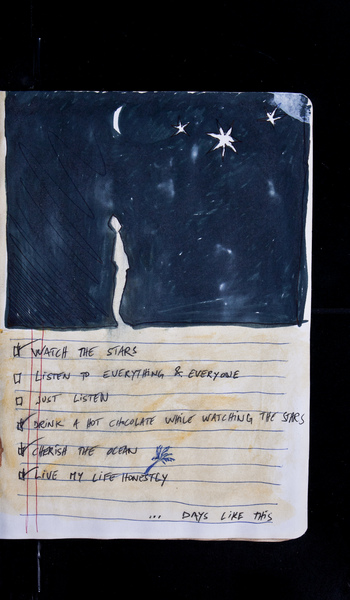 WATCH THE STARS
LISTEN TO EVERYTHING & EVERYONE
JUST LISTEN
DRINK A HOT CHOCOLATE WHILE WATCHING THE STARS
CHERISH THE OCEAN
LIVE MY LIFE HONESTLY
... DAYS LIKE THIS